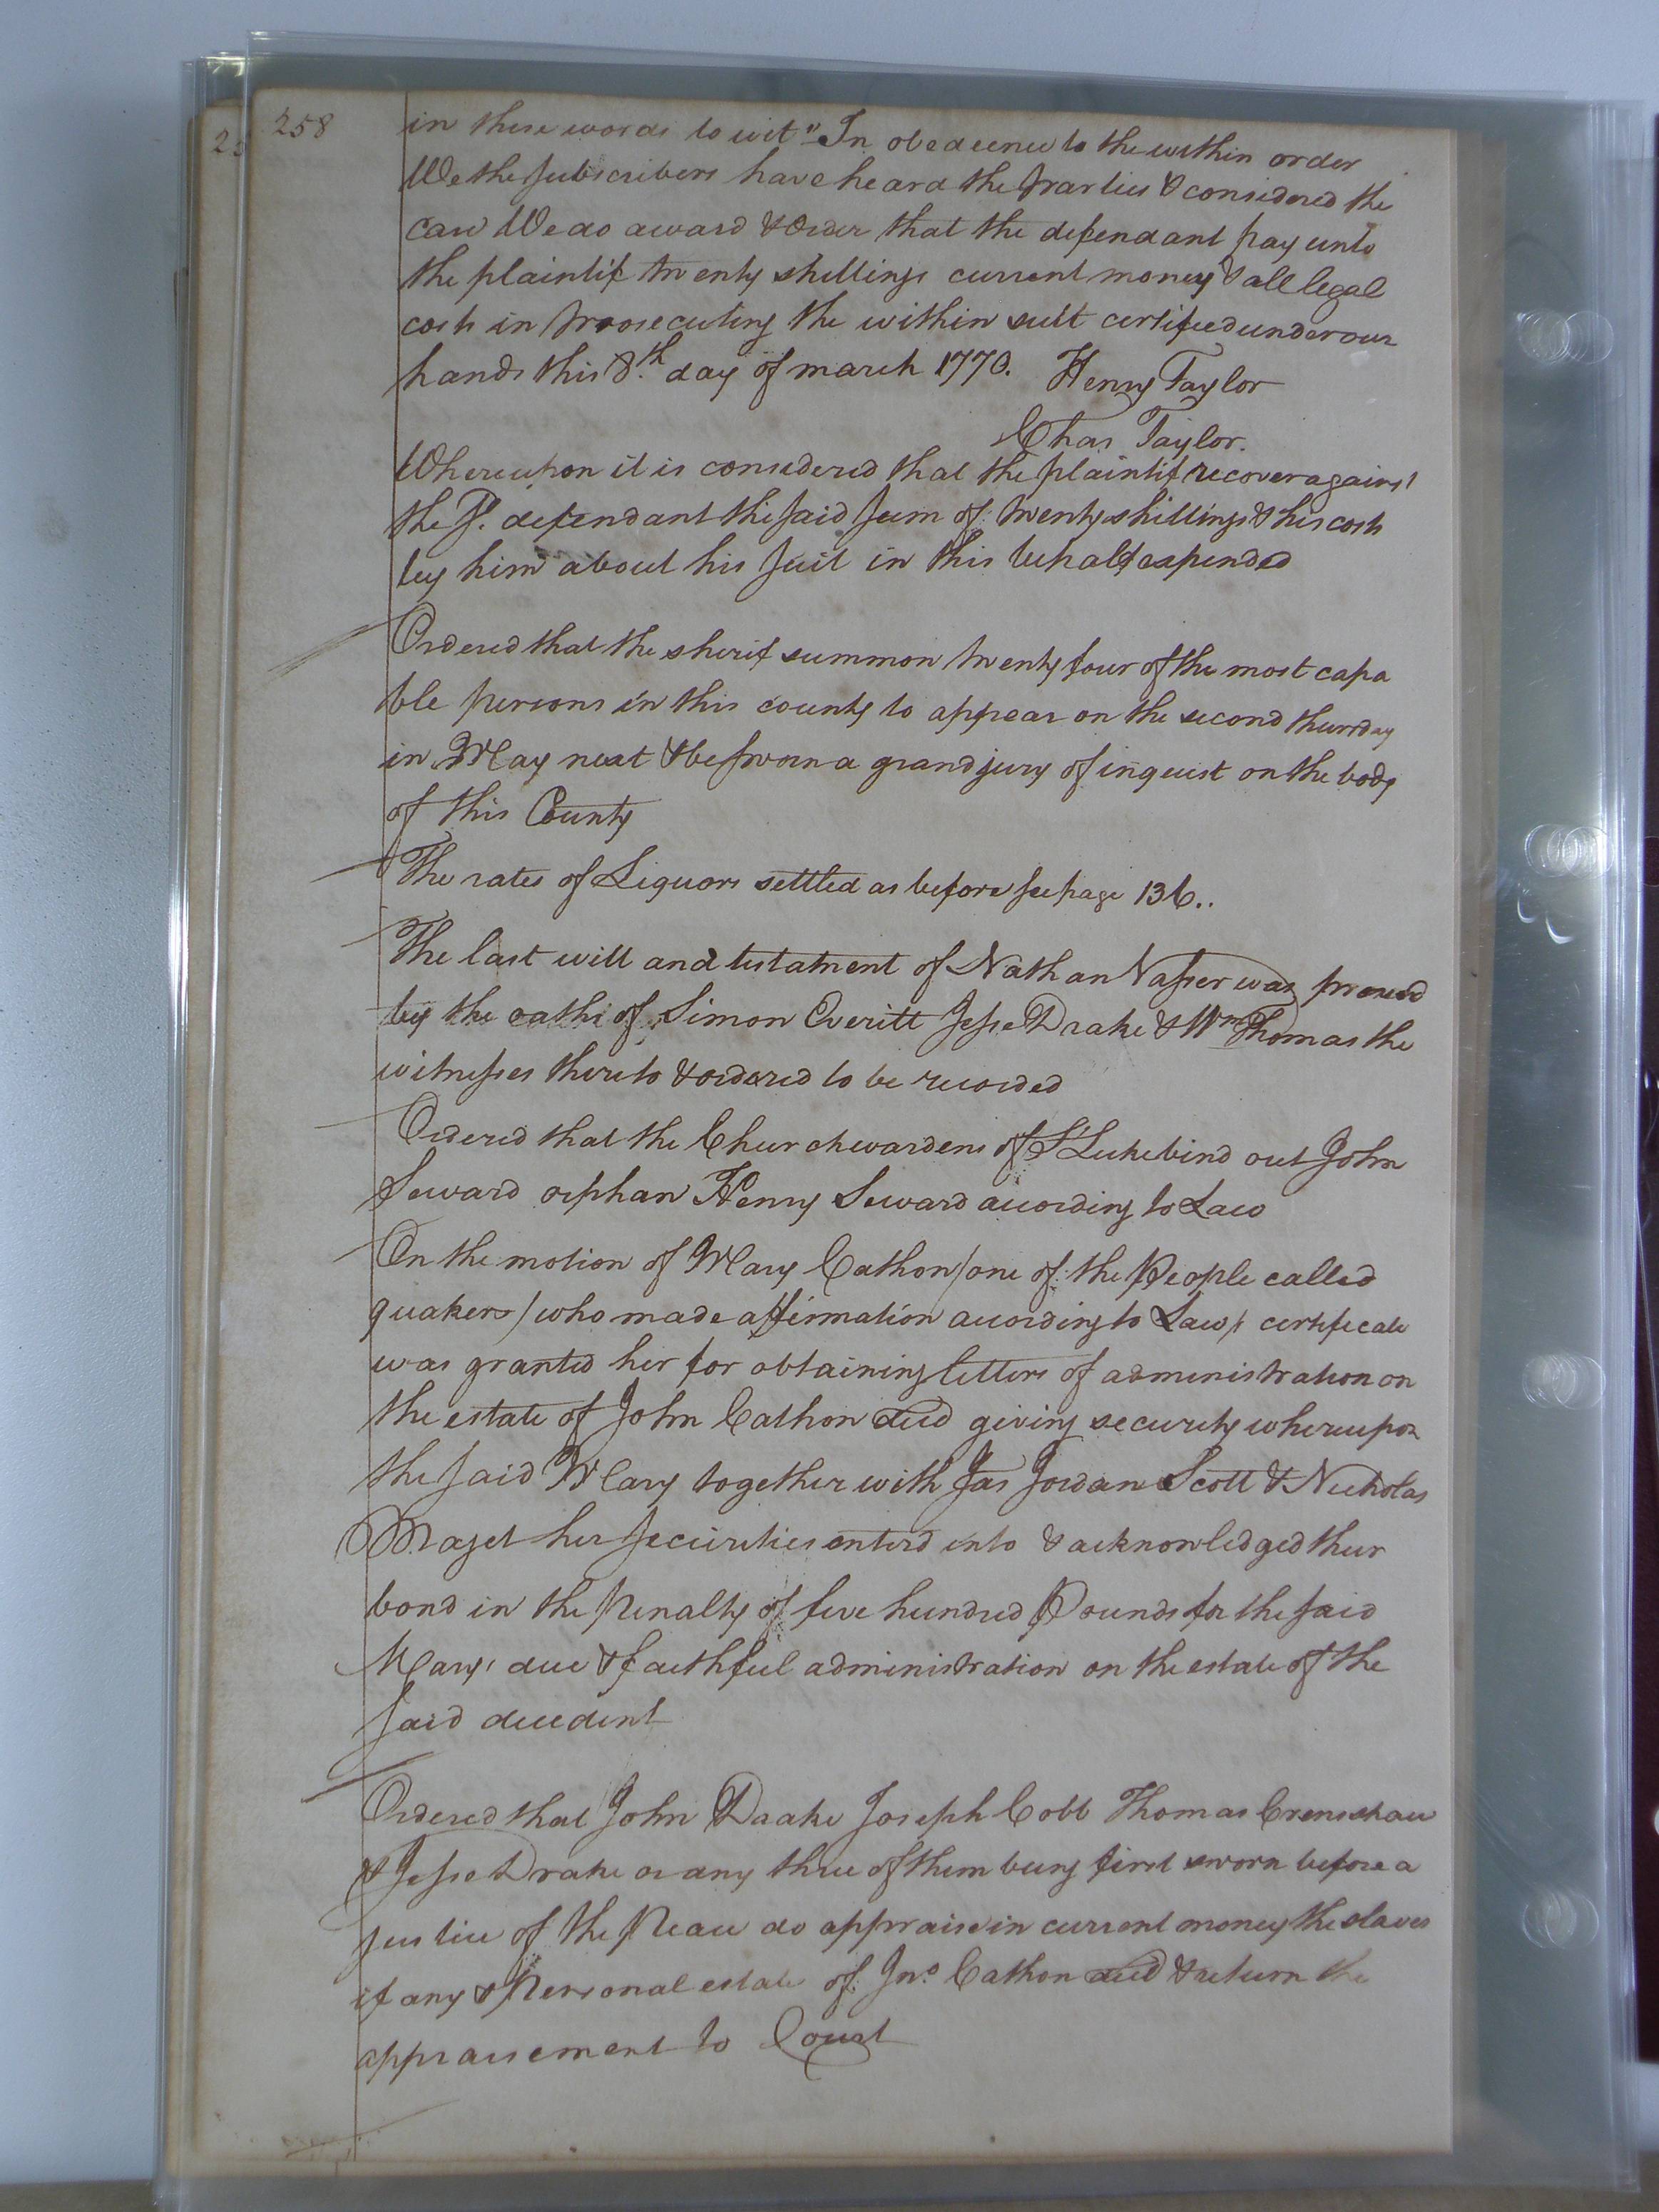 258
in these words to wit "In obedience to the within order
We the subscribers have heard the parties & considered the
case We do award & order that the defendant pay unto
the plaintif twenty shillings current money & all legal
costs in prosecuting the within suit certified under our
hands this 8.th day of march 1770. Henry Taylor
Chas Taylor.
Whereupon it is considered that the plaintif recover against
the sd. defendant the said sum of twenty shillings & his costs
by him about his suit in this behalf expended
Ordered that the sherif summon twenty four of the most capa
ble persons in this county to appear on the second thursday
in May next & be sworn a grand jury of inquest on the body
of this County
The rates of Liquors settled as before see page 136..
The last will and testatment of Nathan Vasser was proved
by the oaths of Simon Everitt Jesse Drake & Wm Thomas the
witnesses thereto & ordered to be recorded
Ordered that the Churchwardens of St Luke bind out John
Seward orphan Henry Seward according to Law
On the motion of Mary Cathon/one of the People called
quakers/who made affirmation according to Law/ certificate
was granted her for obtaining letters of administration on
the estate of John Cathon decd giving security whereupon
the said Mary together with Jas Jordan Scott & Nicholas
Maget her securities enterd into & acknowledged their
bond in the penalty of five hundred Pounds for the said
Mary's due & faithful administration on the estate of the
said decedent
Ordered that John Daake Joseph Cobb Thomas Crenshaw
& Jesse Drake or any three of them being first sworn before a
justice of the Peace do appraise in current money the slaves
if any & Personal estate of Jno. Cathon decd & return the
appraisement to Court